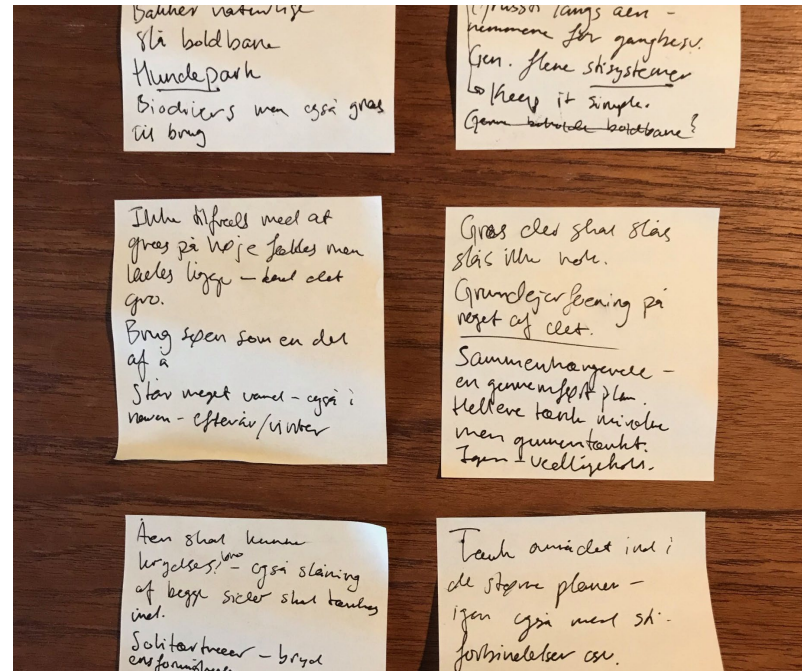 Bakker naturlige
Slå boldbane
Hundepark
Biodivers men også græs
til brug
langs åen -
nemmere for gangbesv.
Gen. flere stisystemer
↳ Keep it simple.
boldbane?
Ikke tilfreds med at
græs på høje fældes men
lades ligge - lad det
gro.
Brug søen som en del
af å
Står meget vand - også i
haven - efterår/vinter
Græs der skal slås
slås ikke nok.
Grundejerforening på
noget af det.
Sammenhængende -
en gennemført plan.
Hellere tænk mindre
men gennemtænkt.
Igen - vedligehold.
Åen skal kunne
krydses! bro - også slåning
af begge sider skal tænkes
ind.
Solitærtræer - bryd
Tænk området ind i
de større planer -
igen også med sti-
forbindelser osv.